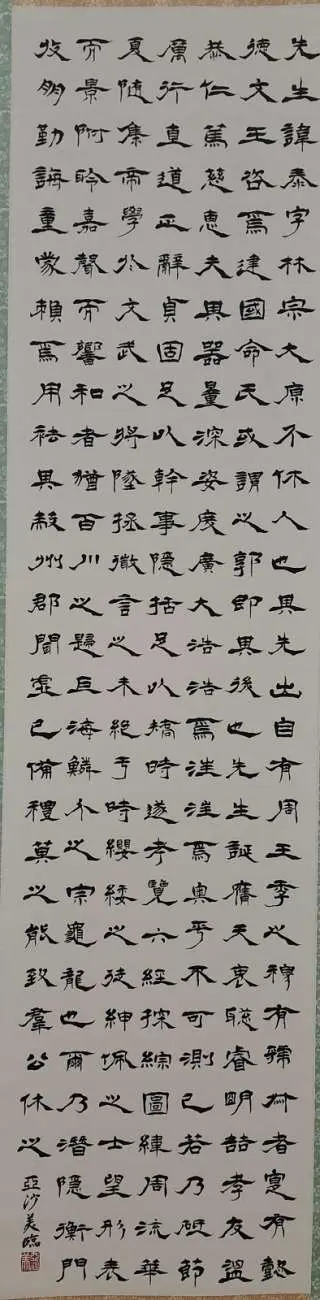 先生諱泰字林宗大原介休人也其先出自有周王季之穆有虢叔者寔有懿
德文王咨焉建國命氏或謂之郭即其後也先生誕膺天衷聰睿明喆孝友溫
恭仁篤慈惠夫其器量深姿度廣大浩浩焉汪汪焉奧乎不可測已若乃砥節
厲行直道正辭貞固足以幹事隱括足以矯時遂考覽六經探綜圖緯周流華
夏隨集帝學於文武之將墜拯微言之未絕于時纓緌之徒紳佩之士望形表
而景附聆嘉聲而響和者猶百川之歸巨海鱗介之宗龜龍也爾乃潛隱衡門
收朋勤誨童蒙賴焉用祛其蔽州郡聞虛已備禮莫之能致羣公休之
亞沙美臨